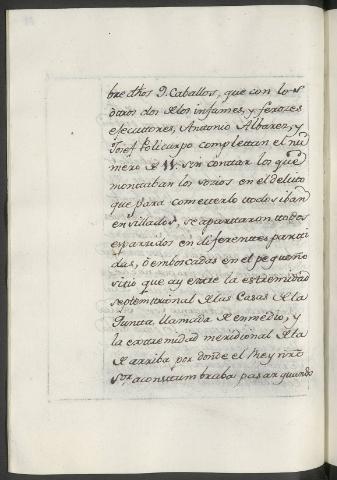 bre dhos 9. Caballos, que con los
otros dos de los infames, y feroces
ejecutores, Antonio Albarez, y
Josef Policarpo complettan el nu
mero de 11. sin conttar los que
monttaban los sozios en el delito
que para cometterlo ttodos iban
ensillados, se aparttaron ttodos
esparsidos en diferenttes partti
das, ó emboscadas en el pequeño
sitio que ay entre la estremidad
septemttrional de las Casas de la
Quntta llamada de enmedio, y
la exttremidad meridional de la
de arriba por donde el Rey nrô
Sor. acosttumbraba pasar quando